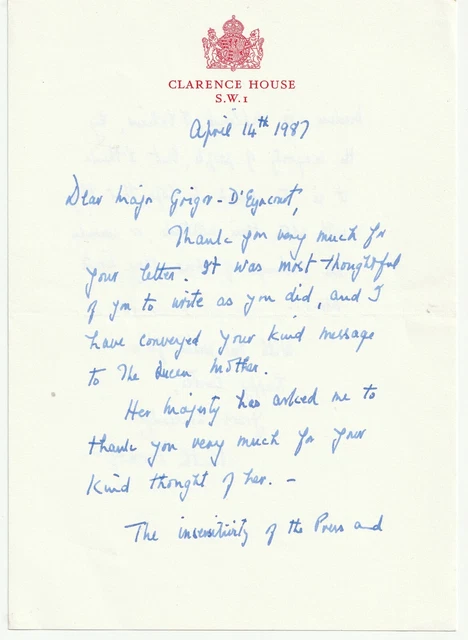 CLARENCE HOUSE
S.W.1
April 14th 1987
Dear Major Grigor - D'Eyncourt,
Thank you very much for
your letter. It was most thoughtful
of you to write as you did, and I
have conveyed your kind message
to The Queen Mother.
Her Majesty has asked me to
thank you very much for your
kind thought of her. -
The insensitivity of the Press and